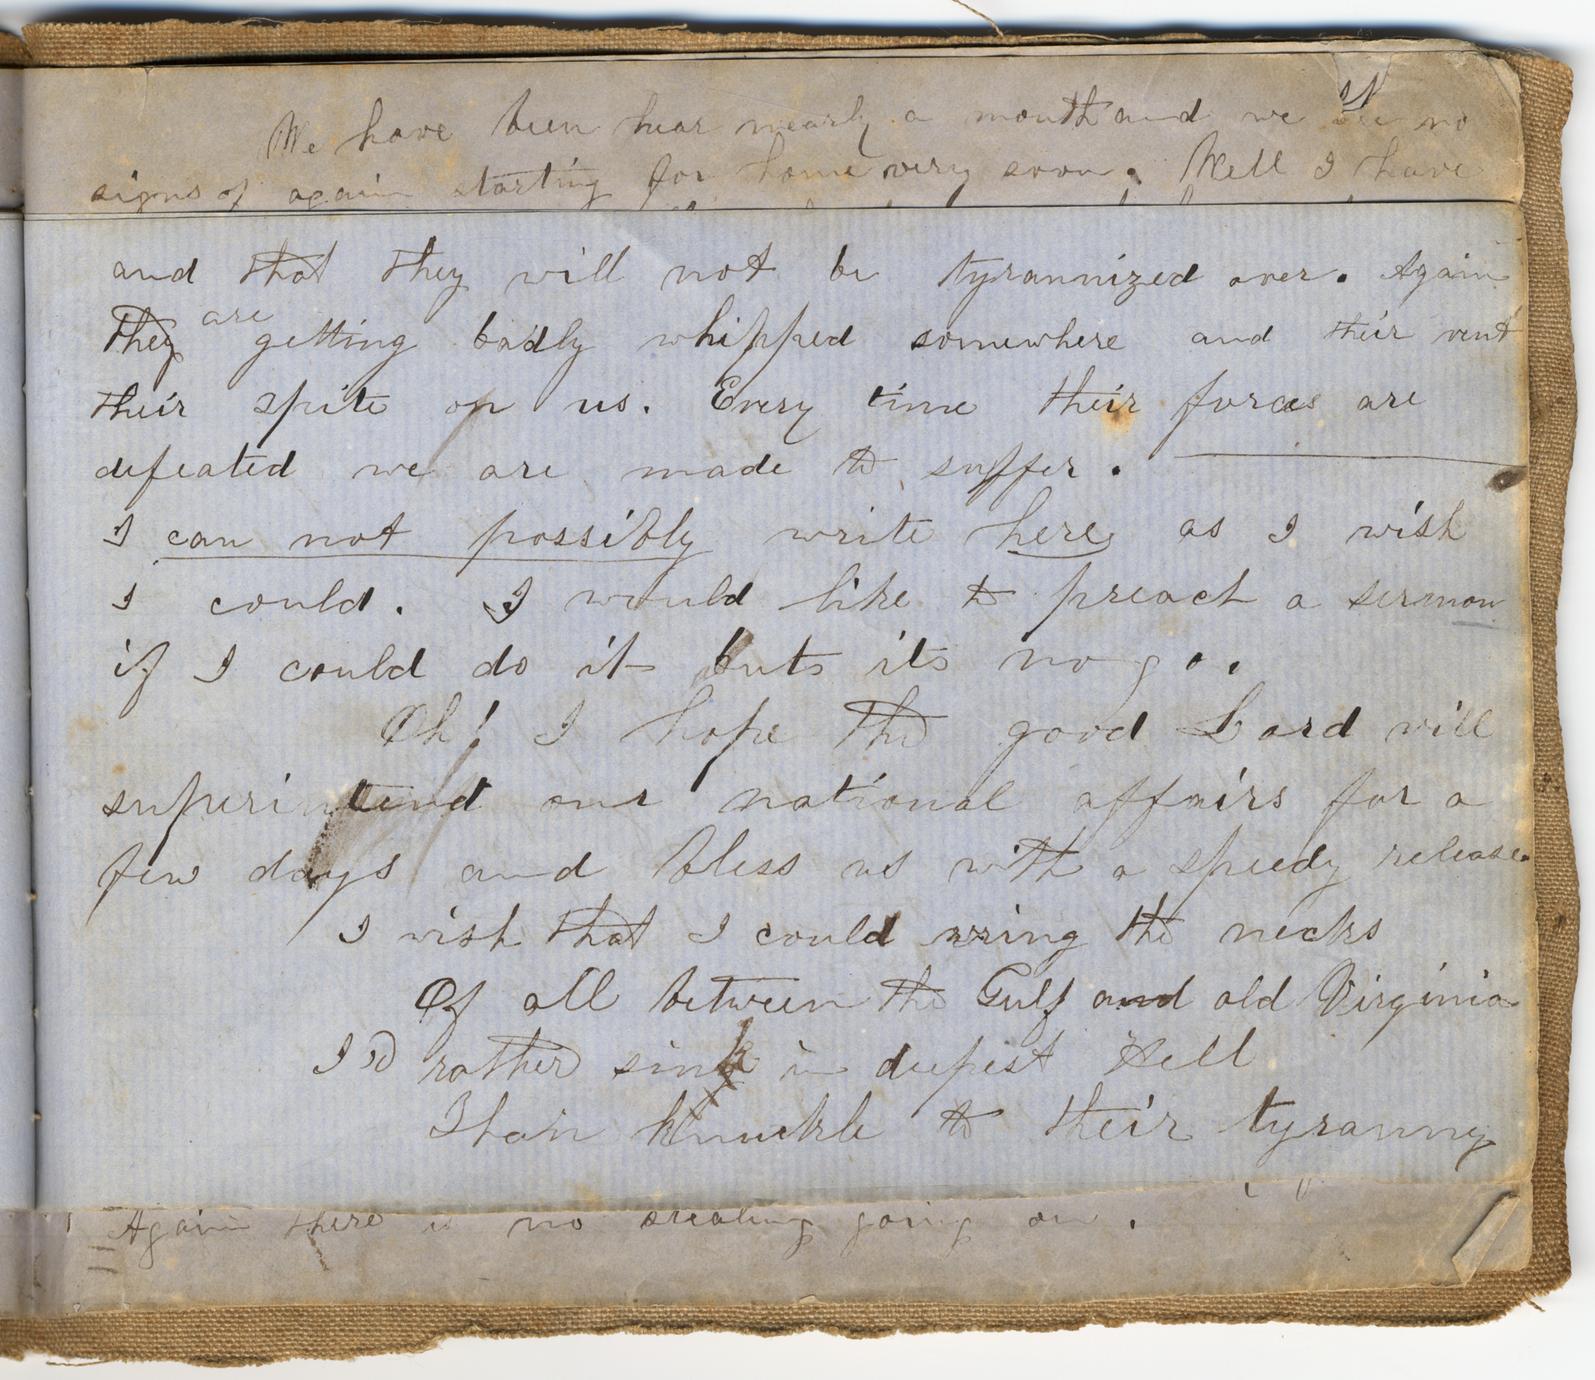 We have been hear nearly a month and we see no
signs of again starting for home very soon. Well I have
and that they will not be tyrannized over. Again
they are getting badly whipped somewhere and their vent
their spite on us. Every time their forces are
defeated we are made to suffer.
I can not possibly write here as I wish
I could. I would like to preach a sermon
if I could do it buts its no go.
Oh! I hope the good Lord will
superintend our national affairs for a
few days and bless us with a speedy release.
I wish that I could wring the necks
Of all between the Gulf and old Virginia
I'd rather sink in deepest Hell
Than knuckle to their tyranny
Again there is no going on.